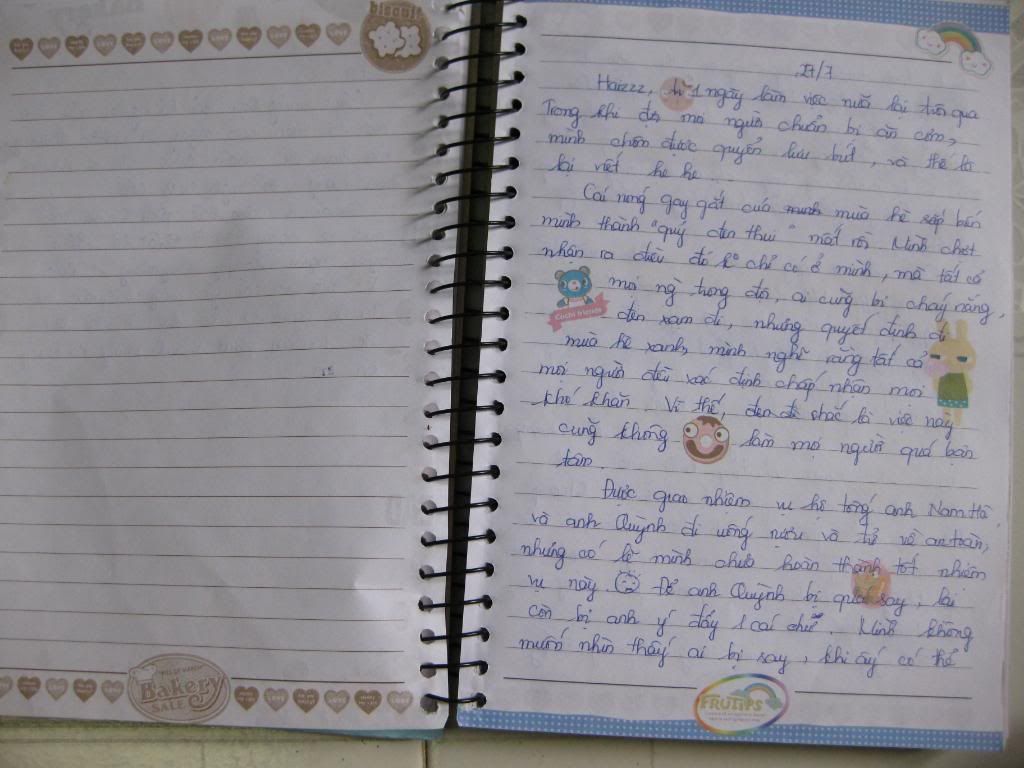 biscuit
Bakery
SALE
27/7
Haizzz, 1 ngày làm việc nữa lại trôi qua
Trong khi đợi mọi người chuẩn bị ăn cơm,
mình chôm được quyển lưu bút, và thế là
lại viết he he
Cái nóng gay gắt của mùa hè sắp biến
mình thành "quỷ đen thui" mất rồi. Mình chợt
nhận ra điều đó k° chỉ có ở mình, mà tất cả
mọi ng` trong đội, ai cũng bị cháy nắng,
Cuchi friends
đen xạm đi, nhưng quyết định đi
mùa hè xanh, mình nghĩ rằng tất cả
mọi người đều xác định chấp nhận mọi
khó khăn. Vì thế, đen đi chắc là việc này
cũng không làm mọi người quá bận
tâm.
Được giao nhiệm vụ hộ tống anh Nam Hà
và anh Quỳnh đi uống rượu và về an toàn,
nhưng có lẽ mình chưa hoàn thành tốt nhiệm
vụ này. Để anh Quỳnh bị quá say, lại
còn bị anh ý đấy 1 cái chứ. Mình không
muốn nhìn thấy ai bị say, khi ấy có thể
FRUTIPS